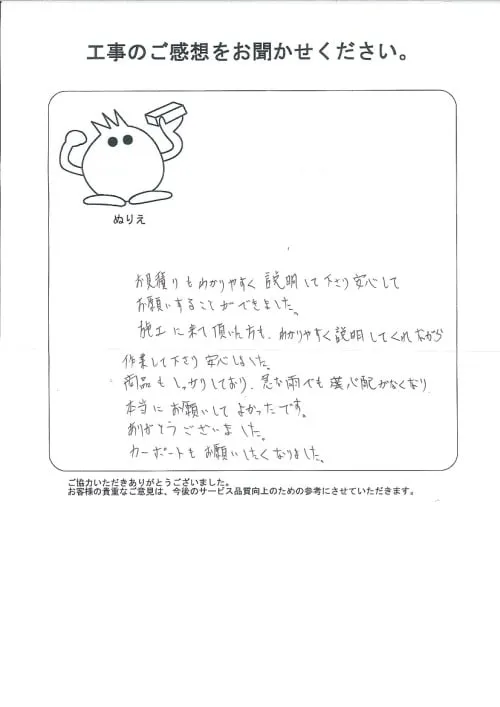 工事のご感想をお聞かせください。
ぬりえ
お見積りもわかりやすく説明して下さり安心して
お願いすることができました。
施工に来て頂いた方も、わかりやすく説明してくれながら
作業して下さり安心しました。
商品もしっかりしており、急な雨でも 心配がなくなり
本当にお願いしてよかったです。
ありがとうございました。
カーポートもお願いしたくなりました。
ご協力いただきありがとうございました。
お客様の貴重なご意見は、今後のサービス品質向上のための参考にさせていただきます。